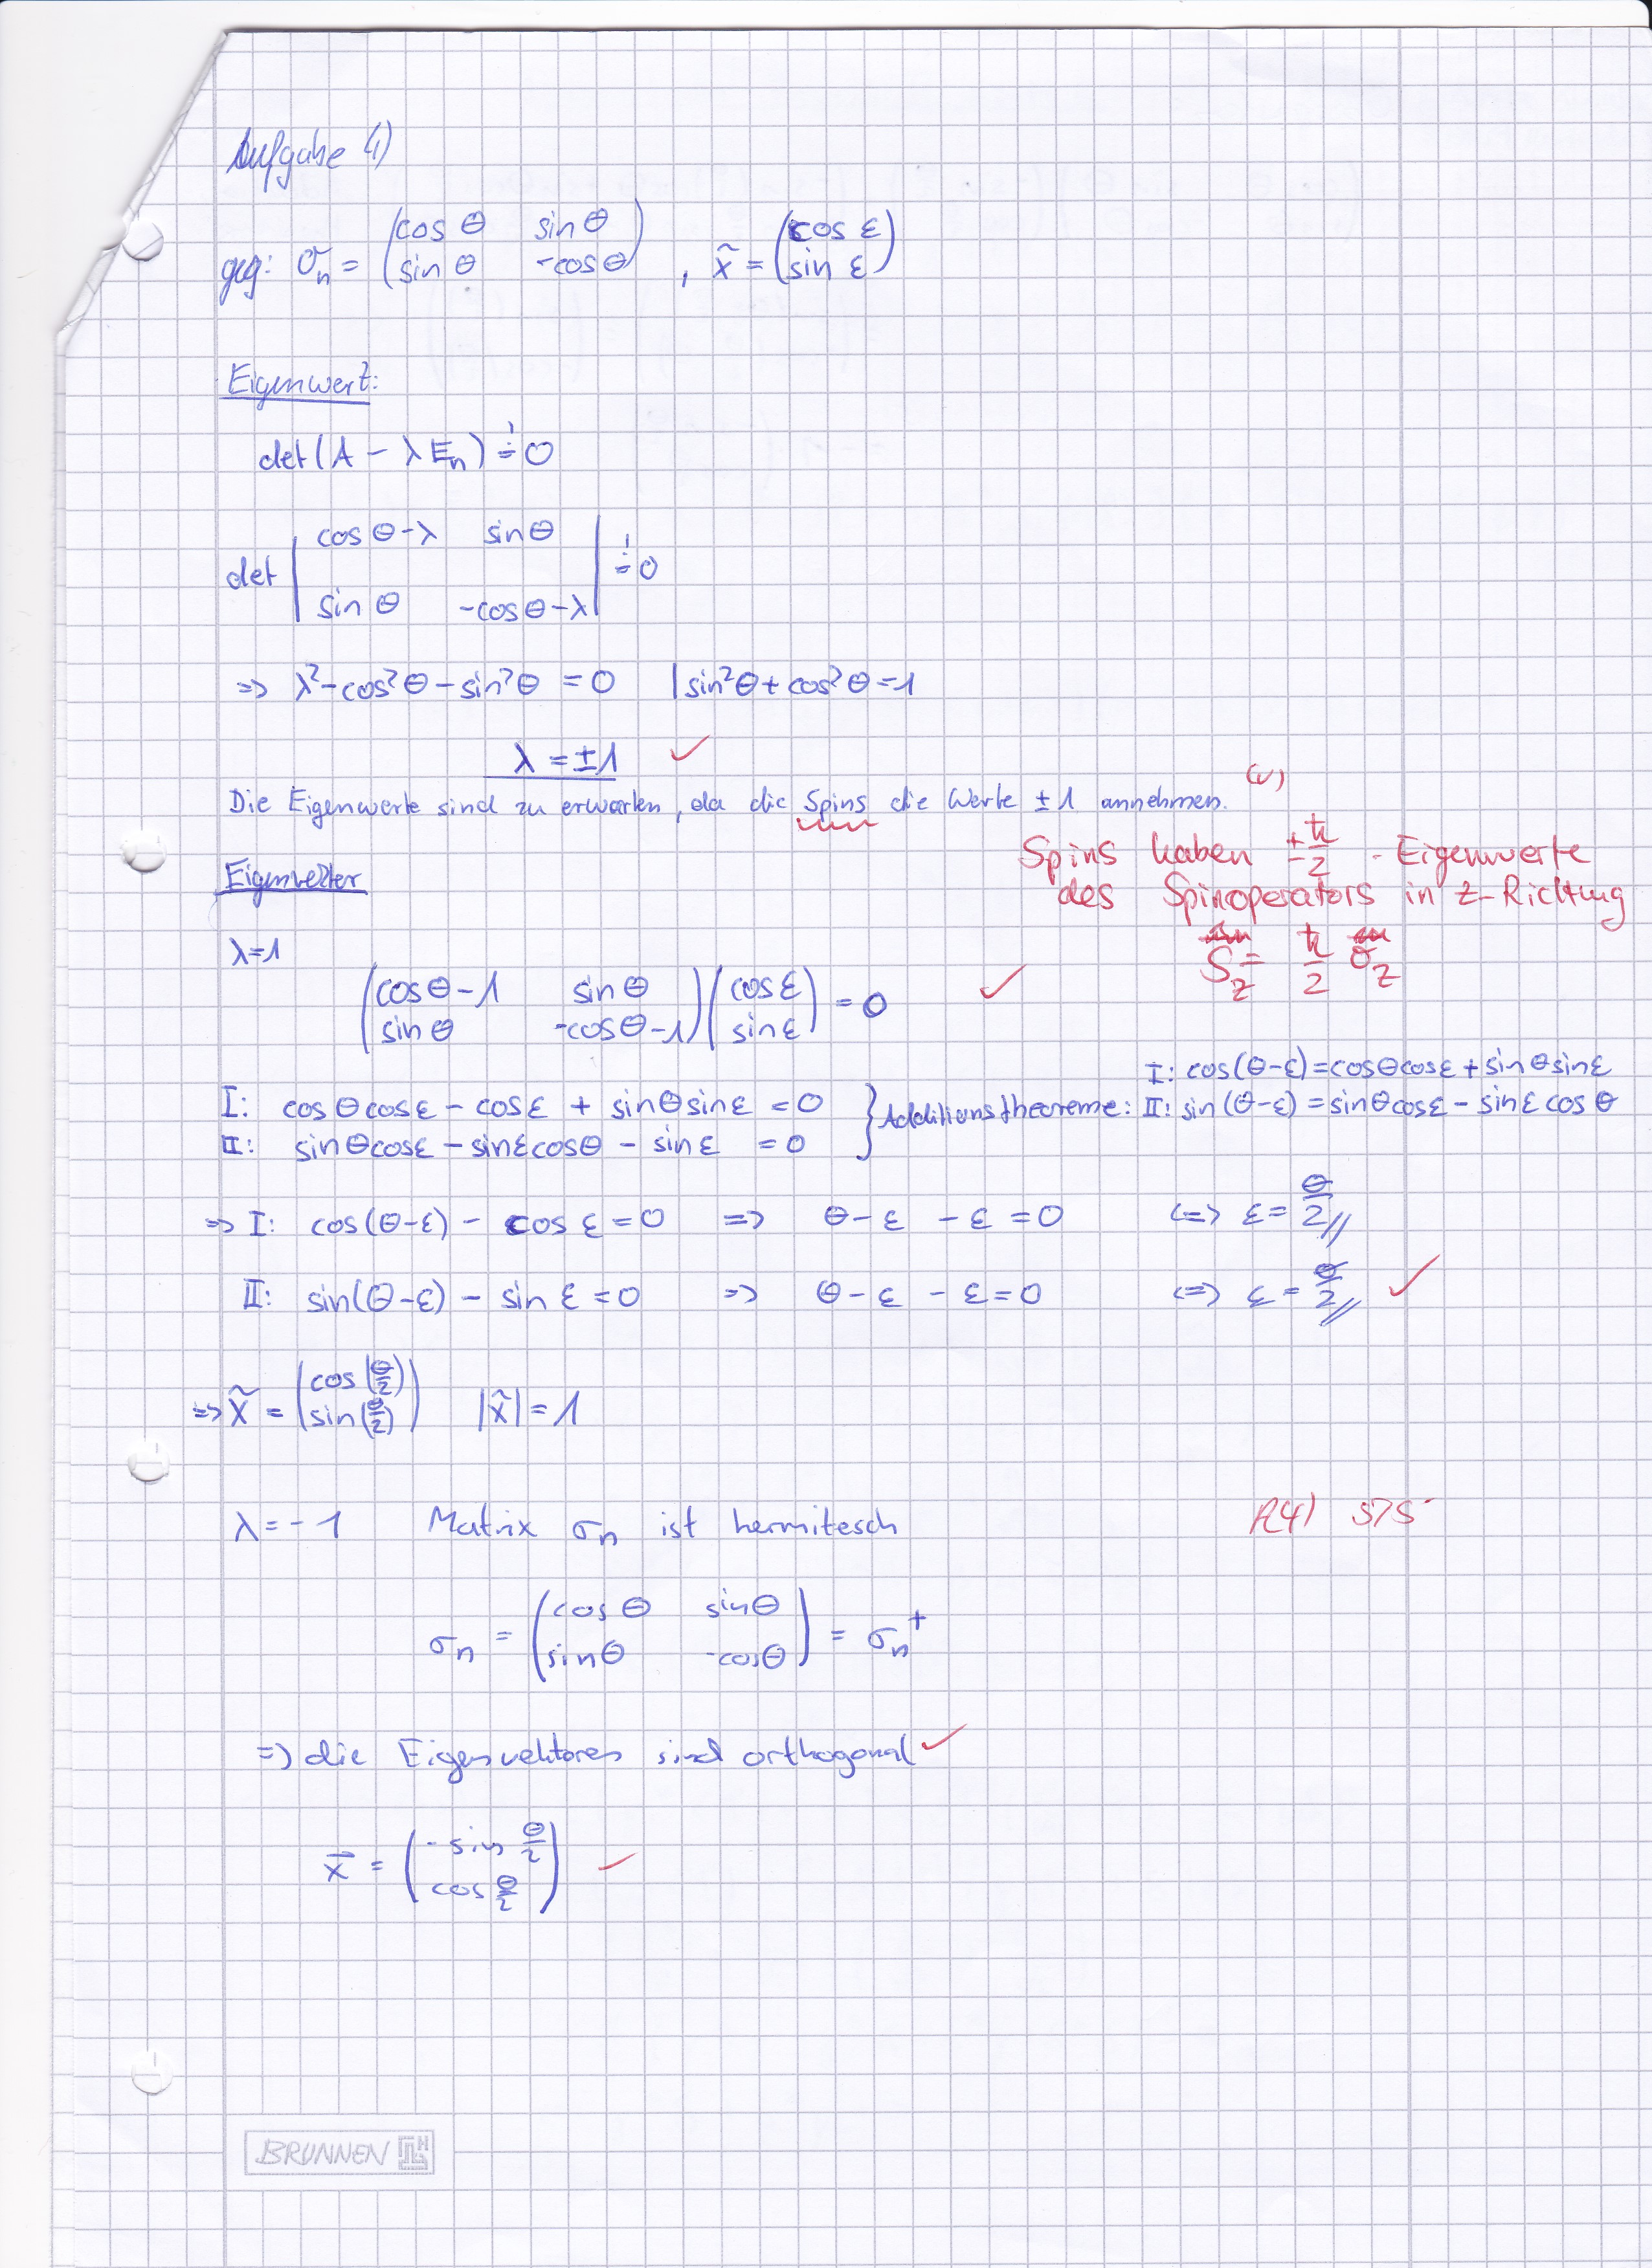 Aufgabe 1)
geg: σₙ = (cos θ sin θ
sin θ -cos θ) , x̃ = (cos ε
sin ε)
Eigenwert:
det(A - λEₙ) != 0
det | cos θ-λ sin θ
sin θ -cos θ-λ | != 0
=> λ²-cos²θ-sin²θ = 0 | sin²θ+cos²θ=1
λ = ±1 ✓
Die Eigenwerte sind zu erwarten, da die Spins die Werte ±1 annehmen. (✓)
Spins haben ±ħ/2 - Eigenwerte
des Spinoperators in z-Richtung
S_z = ħ/2 σ_z
Eigenvektor
λ=1
(cos θ-1 sin θ
sin θ -cos θ-1) (cos ε
sin ε) = 0 ✓
I: cos θ cos ε - cos ε + sin θ sin ε = 0
II: sin θ cos ε - sin ε cos θ - sin ε = 0
} Additionstheoreme: I: cos(θ-ε)=cos θ cos ε + sin θ sin ε
II: sin(θ-ε) = sin θ cos ε - sin ε cos θ
=> I: cos(θ-ε) - cos ε = 0 => θ-ε -ε = 0 <=> ε = θ/2
II: sin(θ-ε) - sin ε = 0 => θ-ε -ε = 0 <=> ε = θ/2 ✓
=> x̃ = (cos(θ/2)
sin(θ/2)) |x̃| = 1
λ = -1 Matrix σₙ ist hermitesch
A4) 5/5
σₙ = (cos θ sin θ
sin θ -cos θ) = σₙ⁺
=> die Eigenvektoren sind orthogonal ✓
x⃗ = (- sin θ/2
cos θ/2) ✓
BRUNNEN